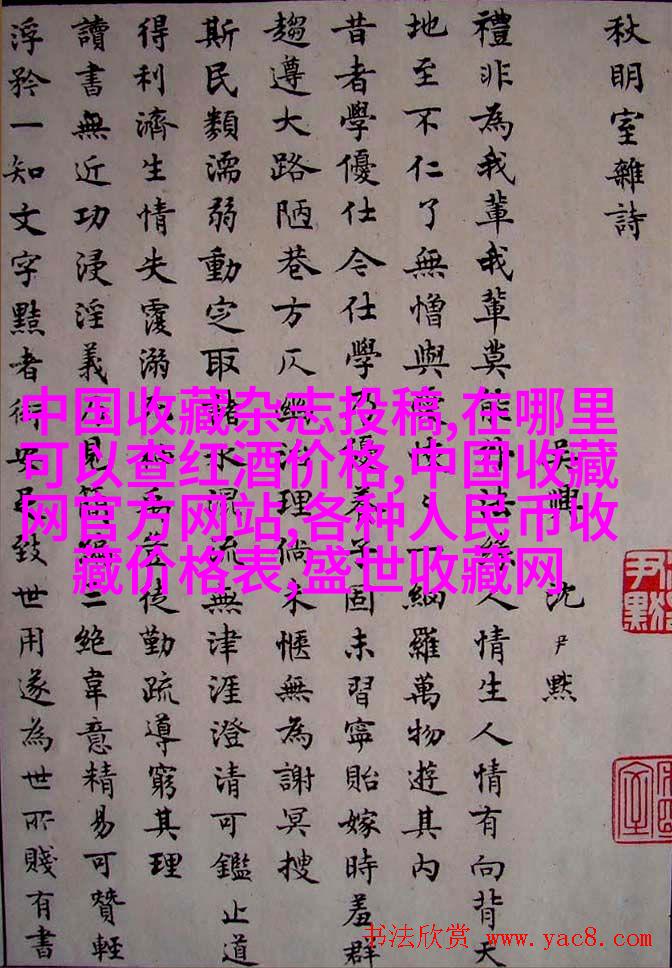 秋明室雜詩
吳興 沈尹默
禮非為我輩我輩莫能外法緣人情生人情有向背天
地至不仁了無憎與愛綱羅萬物遊其內
昔者學優仕今仕學乃優養子固未習寧貽嫁時羞群
趨遵大路陋巷方仄理尚未愜無為謝冥搜
斯民類濡弱動定取諸水混流無津涯澄清可鑑止道
得利濟生情失覆溺徒勤疏導窮其理
讀書無近功浸淫義乃見簡編三絕韋意精易可贊輕
浮矜一知文字點者衒致世用遂為世所賤有書
尹默
中国收藏杂志投稿,在哪里
可以查红酒价格,中国收藏
网官方网站,各种人民币收
藏价格表,盛世收藏网
书法欣赏 www.yac8.com